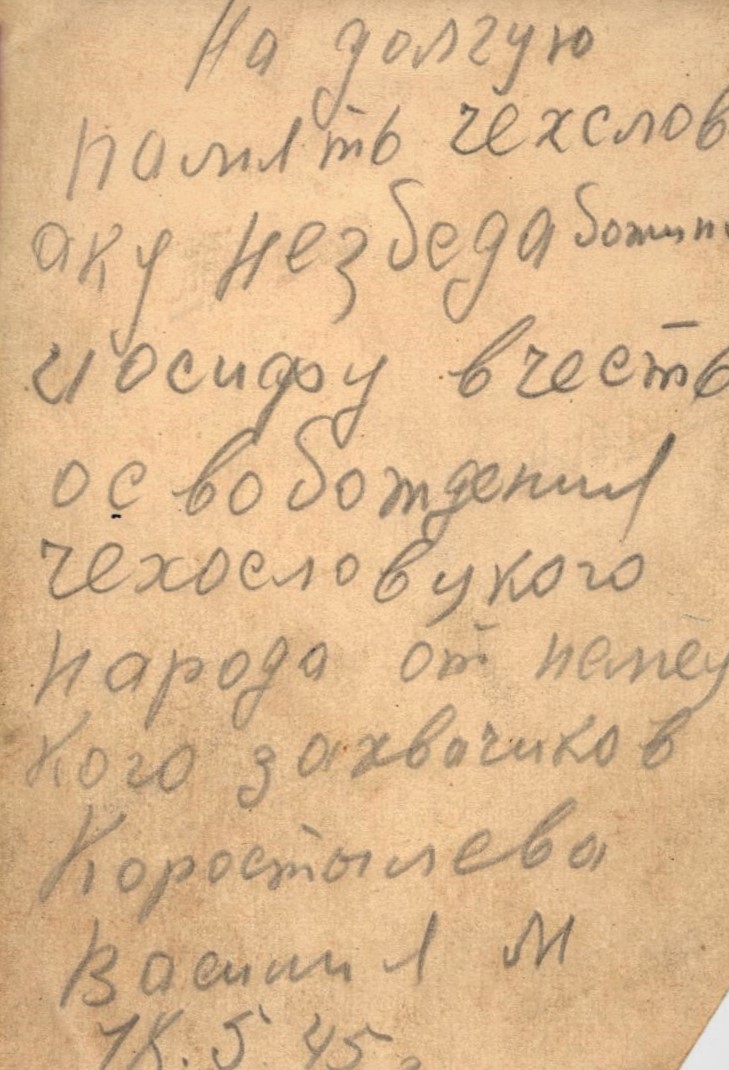 На долгую
память чехслов
аку Незбеда
иосифу в честь
освобождения
чехословукого
народа от немец
кого захвачиков
Коростылева
Василия М
5 45 г